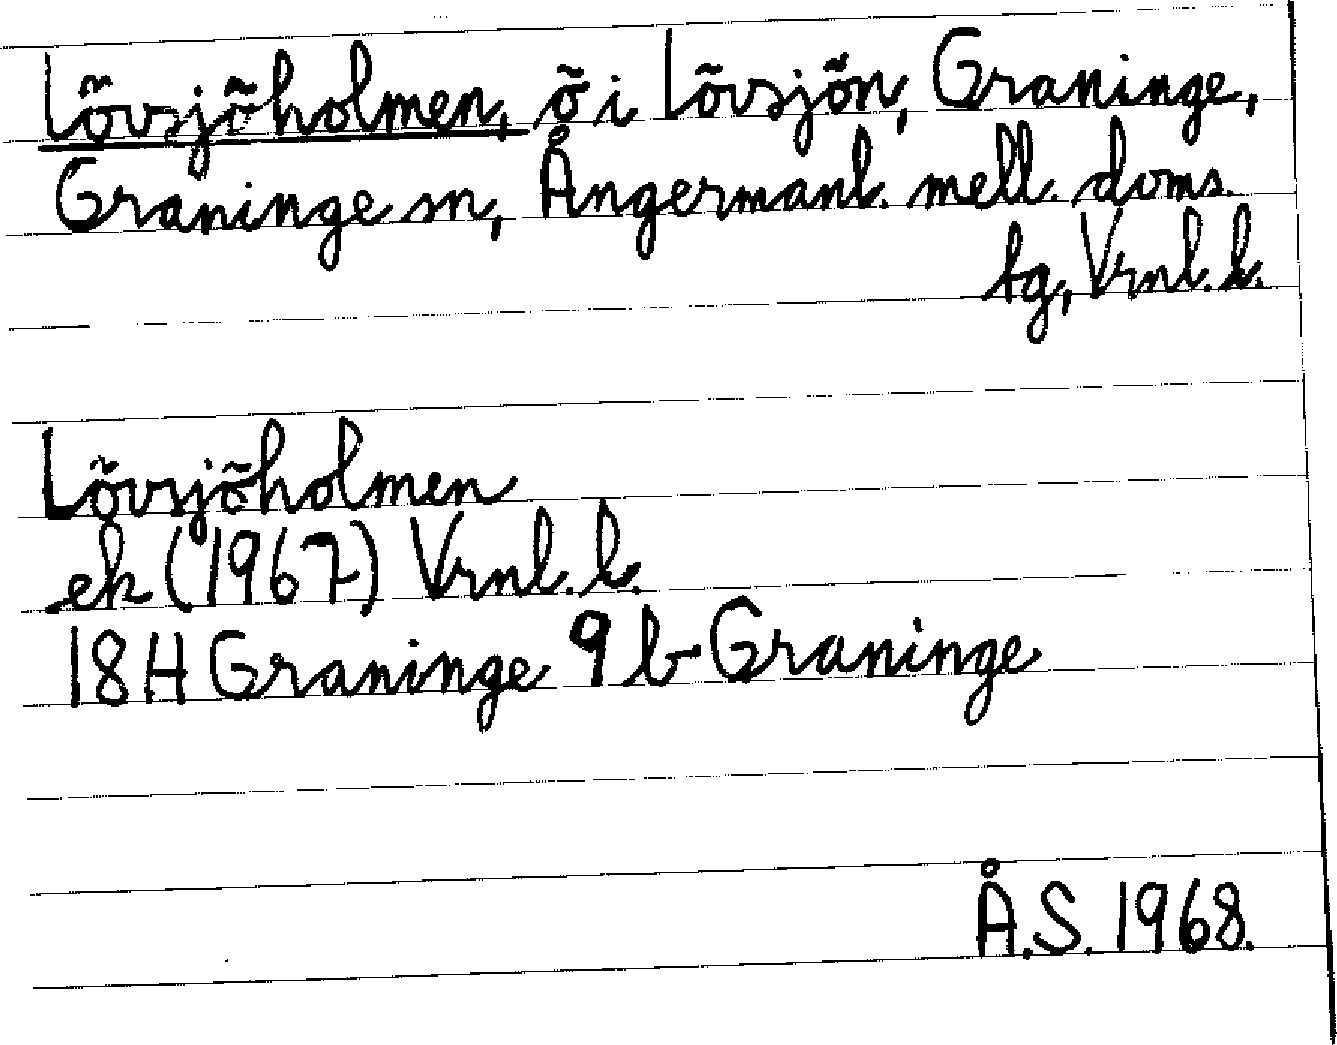 Lövsjöholmen, ö i Lövsjön, Graninge,
Graninge sn, Ångermanl. mell. doms.
tg, Vrnl. l.
Lövsjöholmen
ek (1967) Vrnl. l.
18H Graninge 9 b Graninge
Å.S. 1968.